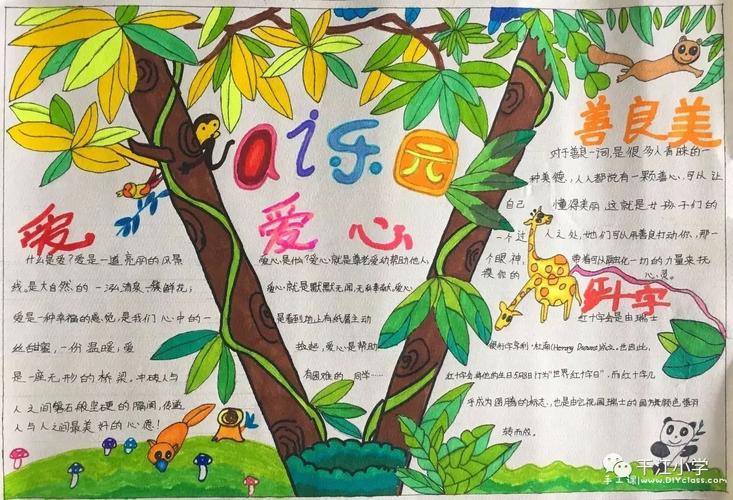 ai乐园
善良美
对于善良一词,是很多人看眯的一
种美德,人人都说有一颗善心,可以让
自己懂得美丽,这就是女孩子们的
一个过人之处,她们可以用善良打动你,那一
个眼神,带着可以融化一切的力量来抚
摸你的心灵。
爱
什么是爱?爱是一道亮丽的风景
线,是大自然的一泓清泉一簇鲜花;
爱是一种幸福的感觉,是我们心中的一
丝甜蜜,一份温暖,爱
是一座无形的桥梁,冲破人与
人之间磐石般坚硬的隔阂,传递
人与人之间最美好的心愿!
爱心
爱心是什么?爱心就是尊老爱幼帮助他人,
爱心就是默默无闻,无私奉献,爱心
是看到地上有纸屑主动
捡起,爱心是帮助
有困难的同学……
红十字
红十字会是由瑞士
便利亨利·杜南(Henry Dunant)成立,也因此,
红十字会将他的生日5月8日订为“世界红十字日”,而红十字几
乎成为图腾的标志,也是由它祖国瑞士的国旗颜色翻
转而成。
干江小学
手工课|www.DIYclass.com